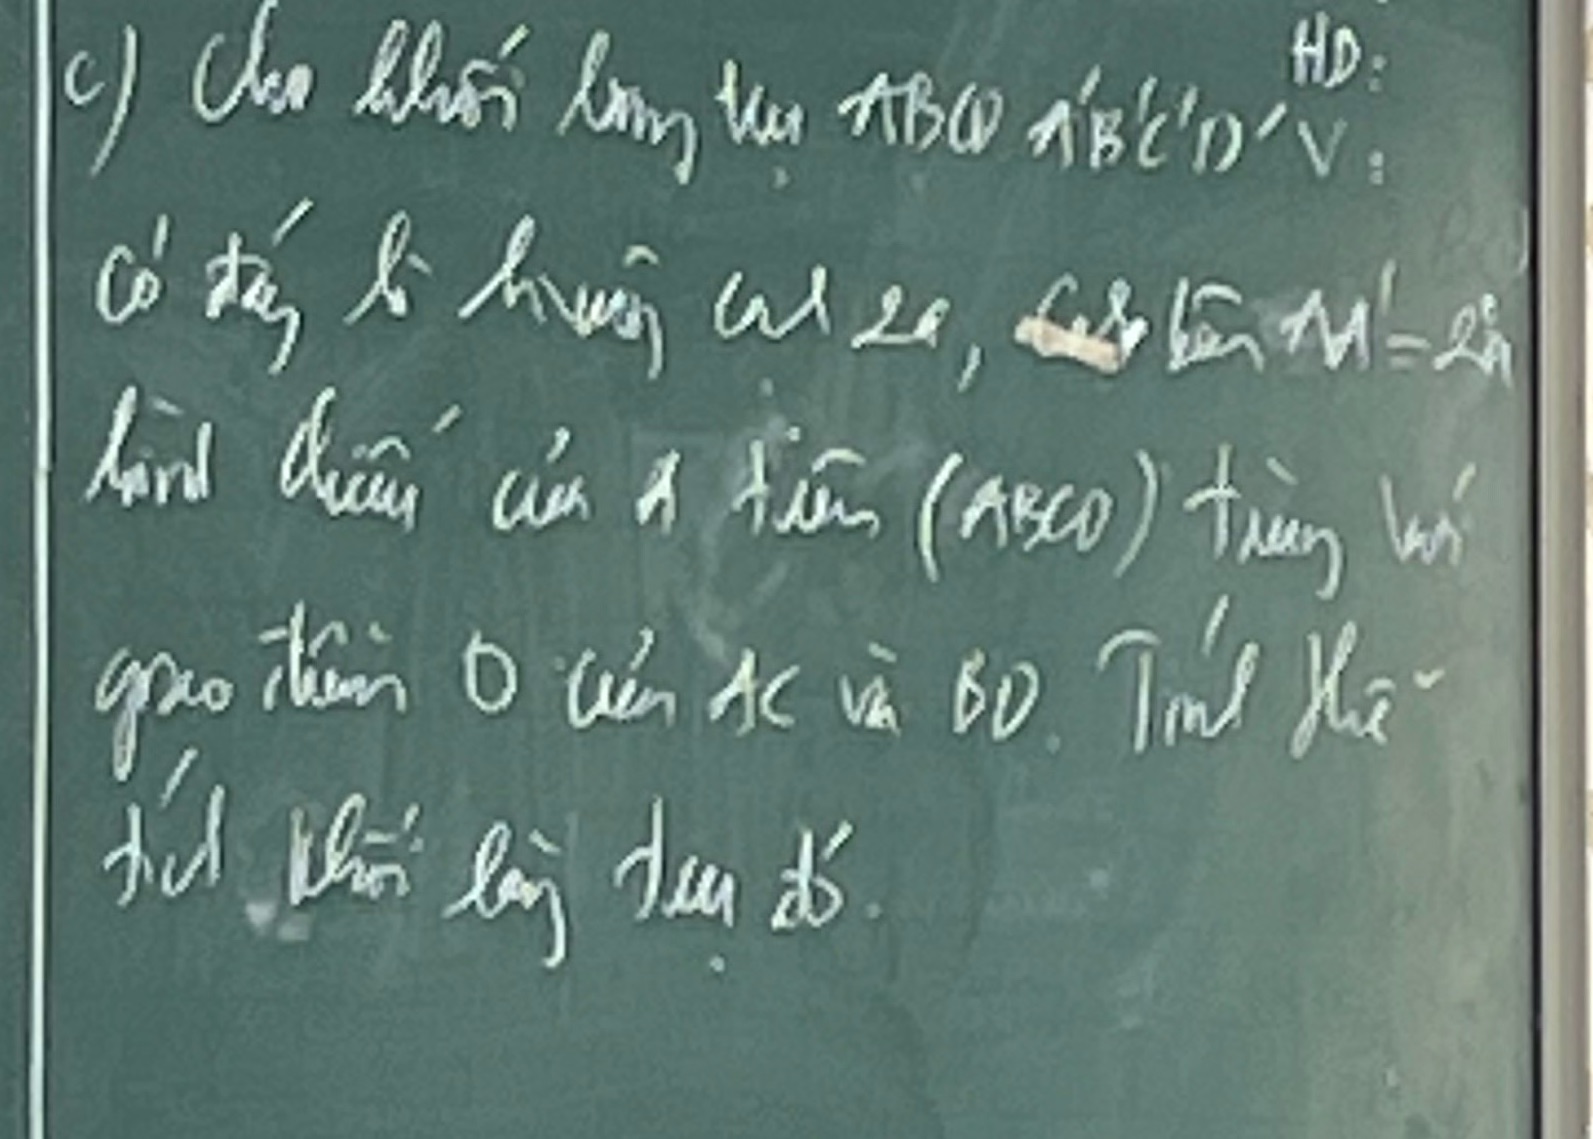 HD:
c) Cho khối lăng trụ ABCD A'B'C'D' V:
Có đáy là h.vuông cạnh 2a, cạnh bên AA' = 2a
hình chiếu của A trên (ABCD) trùng với
giao điểm O của AC và BD. Tính thể
tích khối lăng trụ đó.